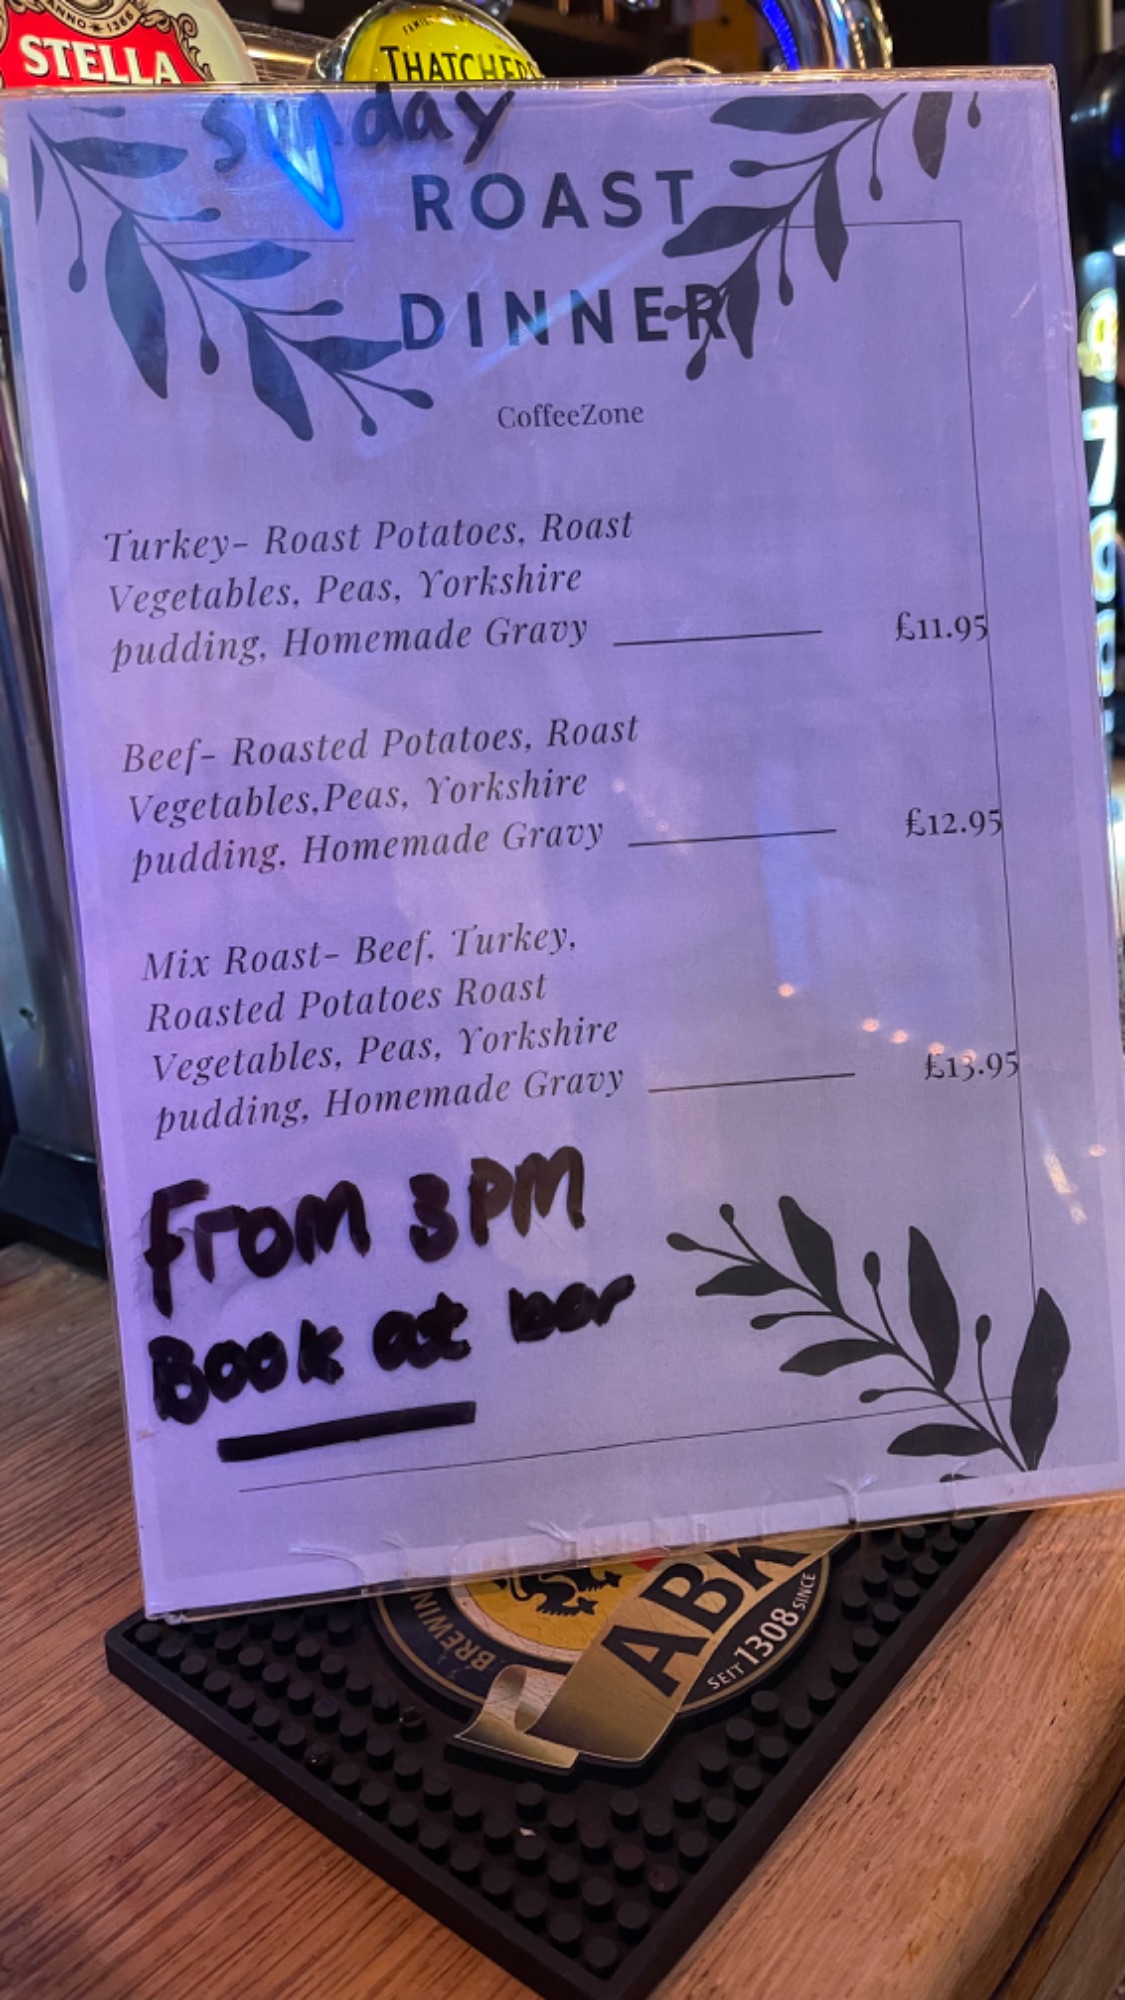 ANNO 1366
STELLA
THATCHERS
sunday
ROAST
DINNER
CoffeeZone
Turkey- Roast Potatoes, Roast
Vegetables, Peas, Yorkshire
pudding, Homemade Gravy £11.95
Beef- Roasted Potatoes, Roast
Vegetables,Peas, Yorkshire
pudding, Homemade Gravy £12.95
Mix Roast- Beef, Turkey,
Roasted Potatoes Roast
Vegetables, Peas, Yorkshire
pudding, Homemade Gravy £13.95
From 3PM
Book at bar
ABK
SEIT 1308 SINCE